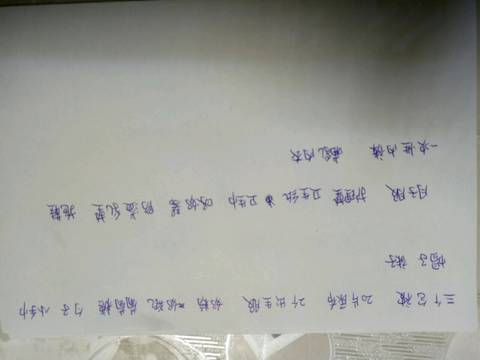 三个包被 20片尿布 2个出生服 奶粉 奶瓶 葡萄糖 勺子 小毛巾
帽子 袜子
月子服 护理垫 卫生纸 卫生巾 吸奶器 防溢乳垫 拖鞋
一次性内裤 哺乳内衣